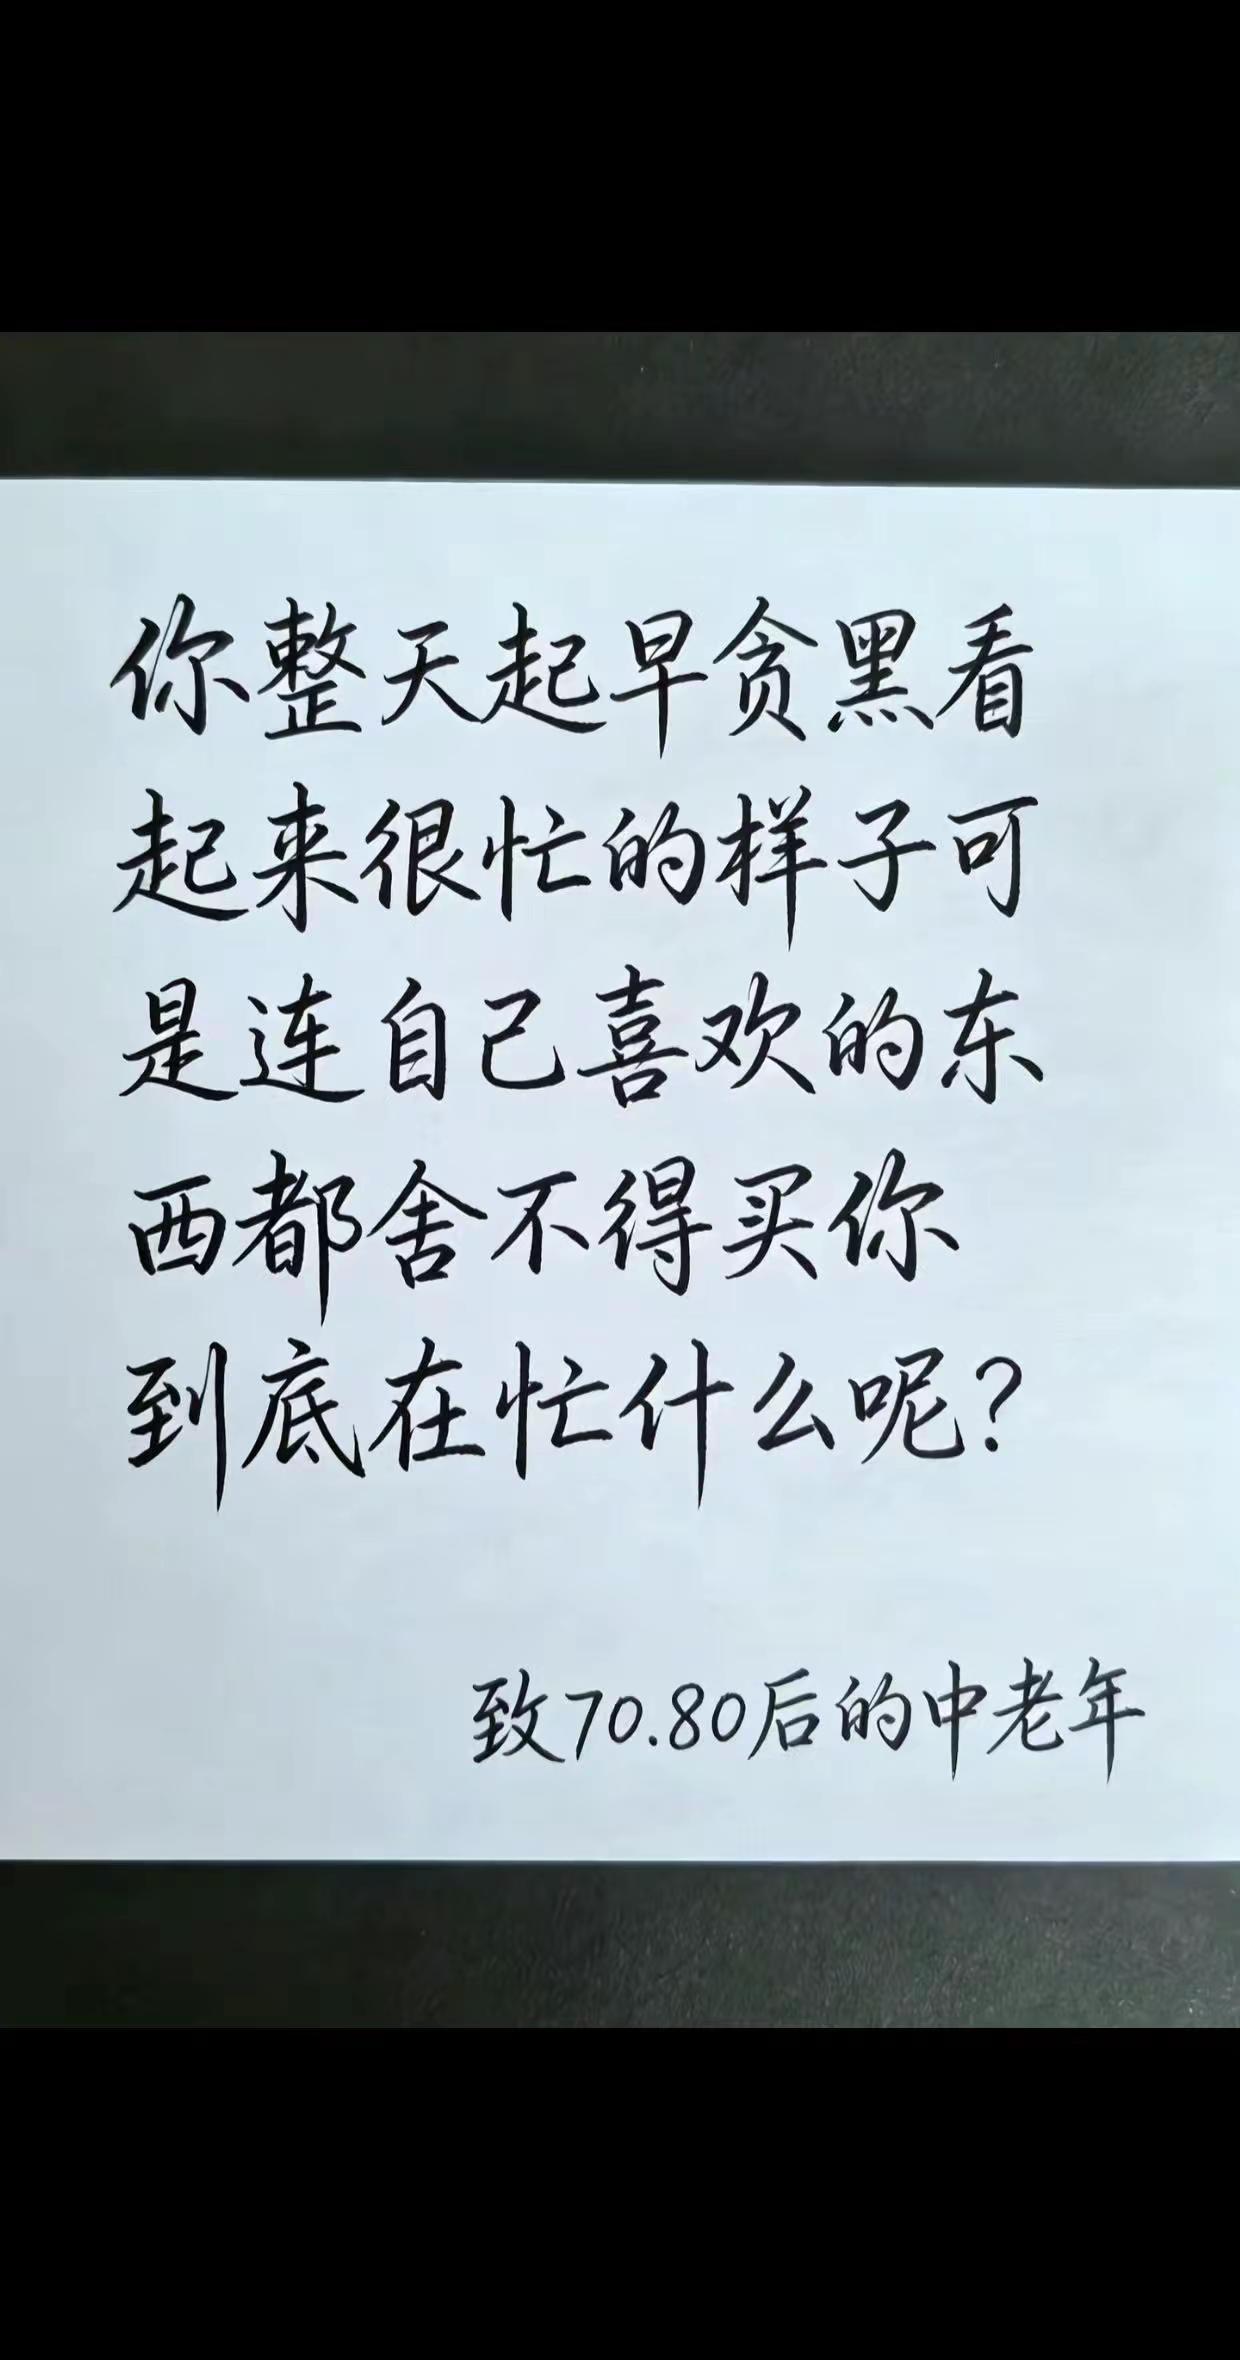 你整天起早贪黑看
起来很忙的样子可
是连自己喜欢的东
西都舍不得买你
到底在忙什么呢?
致70.80后的中老年